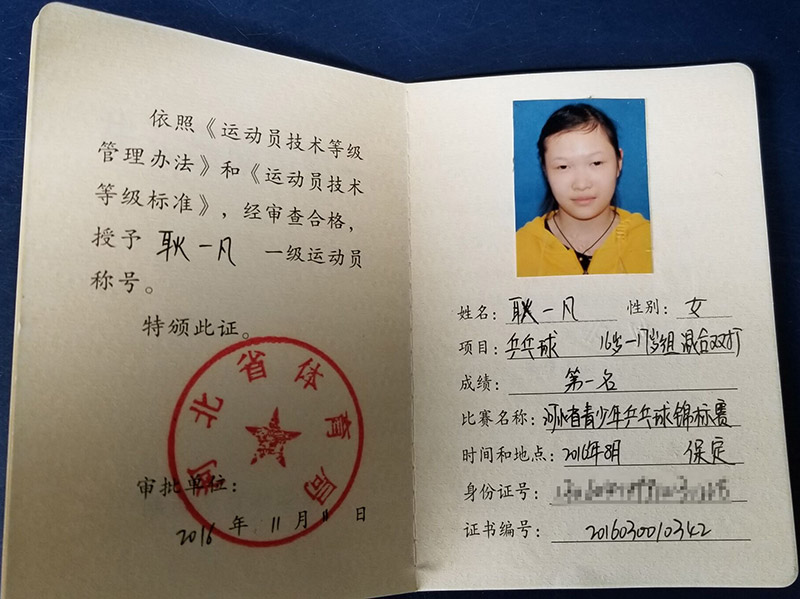 依照《运动员技术等级
管理办法》和《运动员技术
等级标准》，经审查合格，
授予 耿一凡 一级运动员
称号。
特颁此证。
河北省体育局
审批单位：
2016 年 11 月 11 日
姓名：耿一凡 性别：女
项目：乒乓球 16岁—17岁组 混合双打
成绩：第一名
比赛名称：河北省青少年乒乓球锦标赛
时间和地点：2016年8月 保定
身份证号：
证书编号：2016030010342